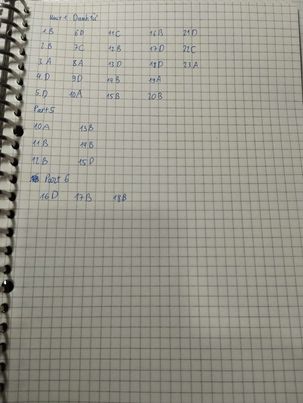 1.B 6D 11C 16B 21D
2.B 7C 12B 17D 22C
3.A 8A 13D 18D 23A
4.D 9D 14B 19A
5.D 10A 15B 20B
Part 5
10A 13B
11B 14B
12B 15D
Part 6
16D 17B 18B